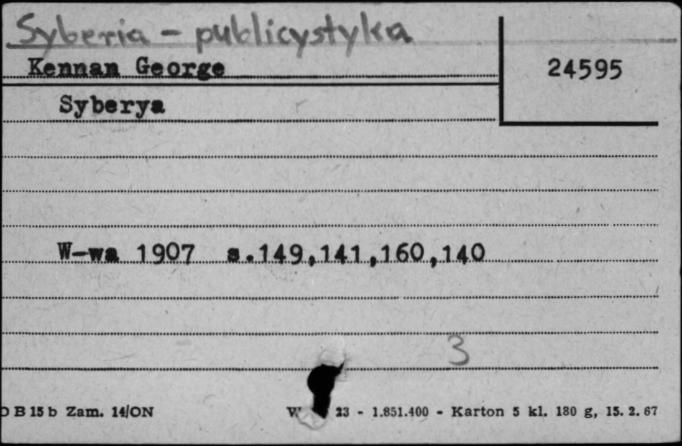 Syberia - publicystyka
Kennan George
24595
Syberya
W-wa 1907 s.149,141,160,140
3
D B 15 b Zam. 14/ON W 23 - 1.851.400 - Karton 5 kl. 180 g, 15. 2. 67